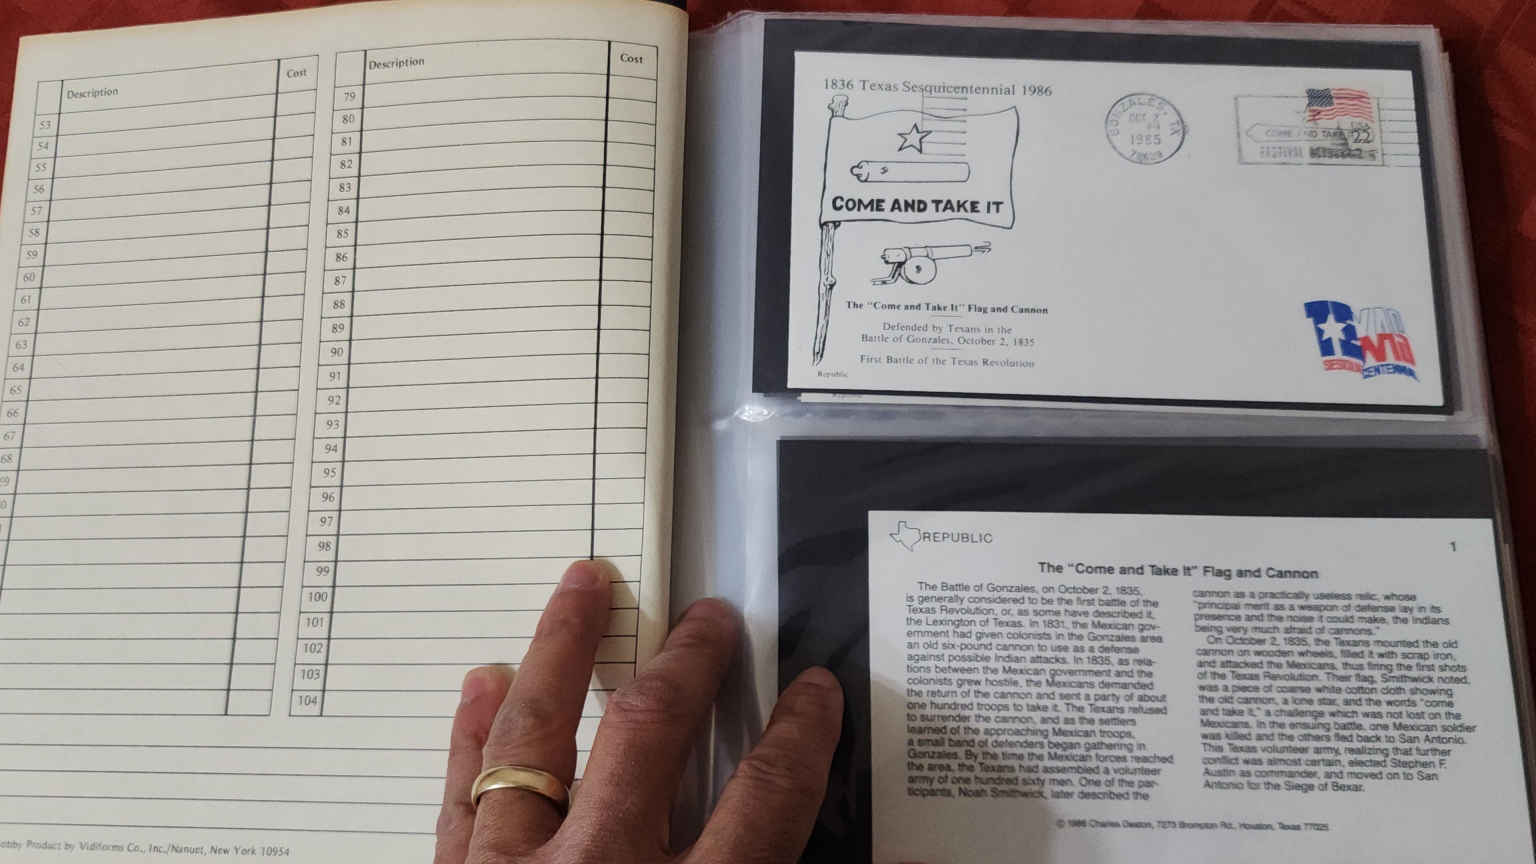 Description
Cost
53
54
55
56
57
58
59
60
61
62
63
64
65
66
67
68
Description
Cost
79
80
81
82
83
84
85
86
87
88
89
90
91
92
93
94
95
96
97
98
99
100
101
102
103
104
obby Product by Vidiforms Co., Inc./Nanuet, New York 10954
1836 Texas Sesquicentennial 1986
COME AND TAKE IT
The "Come and Take It" Flag and Cannon
Defended by Texans in the
Battle of Gonzales, October 2, 1835
First Battle of the Texas Revolution
Republic
GONZALES, TX
OCT 2
1985
COME AND TAKE
22
TEXAS
SESQUICENTENNIAL
REPUBLIC
1
The "Come and Take It" Flag and Cannon
The Battle of Gonzales, on October 2, 1835,
is generally considered to be the first battle of the
Texas Revolution, or, as some have described it,
the Lexington of Texas. In 1831, the Mexican gov-
ernment had given colonists in the Gonzales area
an old six-pound cannon to use as a defense
against possible Indian attacks. In 1835, as rela-
tions between the Mexican government and the
colonists grew hostile, the Mexicans demanded
the return of the cannon and sent a party of about
one hundred troops to take it. The Texans refused
to surrender the cannon, and as the settlers
learned of the approaching Mexican troops,
a small band of defenders began gathering in
Gonzales. By the time the Mexican forces reached
the area, the Texans had assembled a volunteer
army of one hundred sixty men. One of the par-
ticipants, Noah Smithwick, later described the
cannon as a practically useless relic, whose
"principal merit as a weapon of defense lay in its
presence and the noise it could make, the Indians
being very much afraid of cannons."
On October 2, 1835, the Texans mounted the old
cannon on wooden wheels, filled it with scrap iron,
and attacked the Mexicans, thus firing the first shots
of the Texas Revolution. Their flag, Smithwick noted,
was a piece of coarse white cotton cloth showing
the old cannon, a lone star, and the words "come
and take it," a challenge which was not lost on the
Mexicans. In the ensuing battle, one Mexican soldier
was killed and the others fled back to San Antonio.
This Texas volunteer army, realizing that further
conflict was almost certain, elected Stephen F.
Austin as commander, and moved on to San
Antonio for the Siege of Bexar.
© 1986 Charles Deaton, 7273 Brompton Rd., Houston, Texas 77025